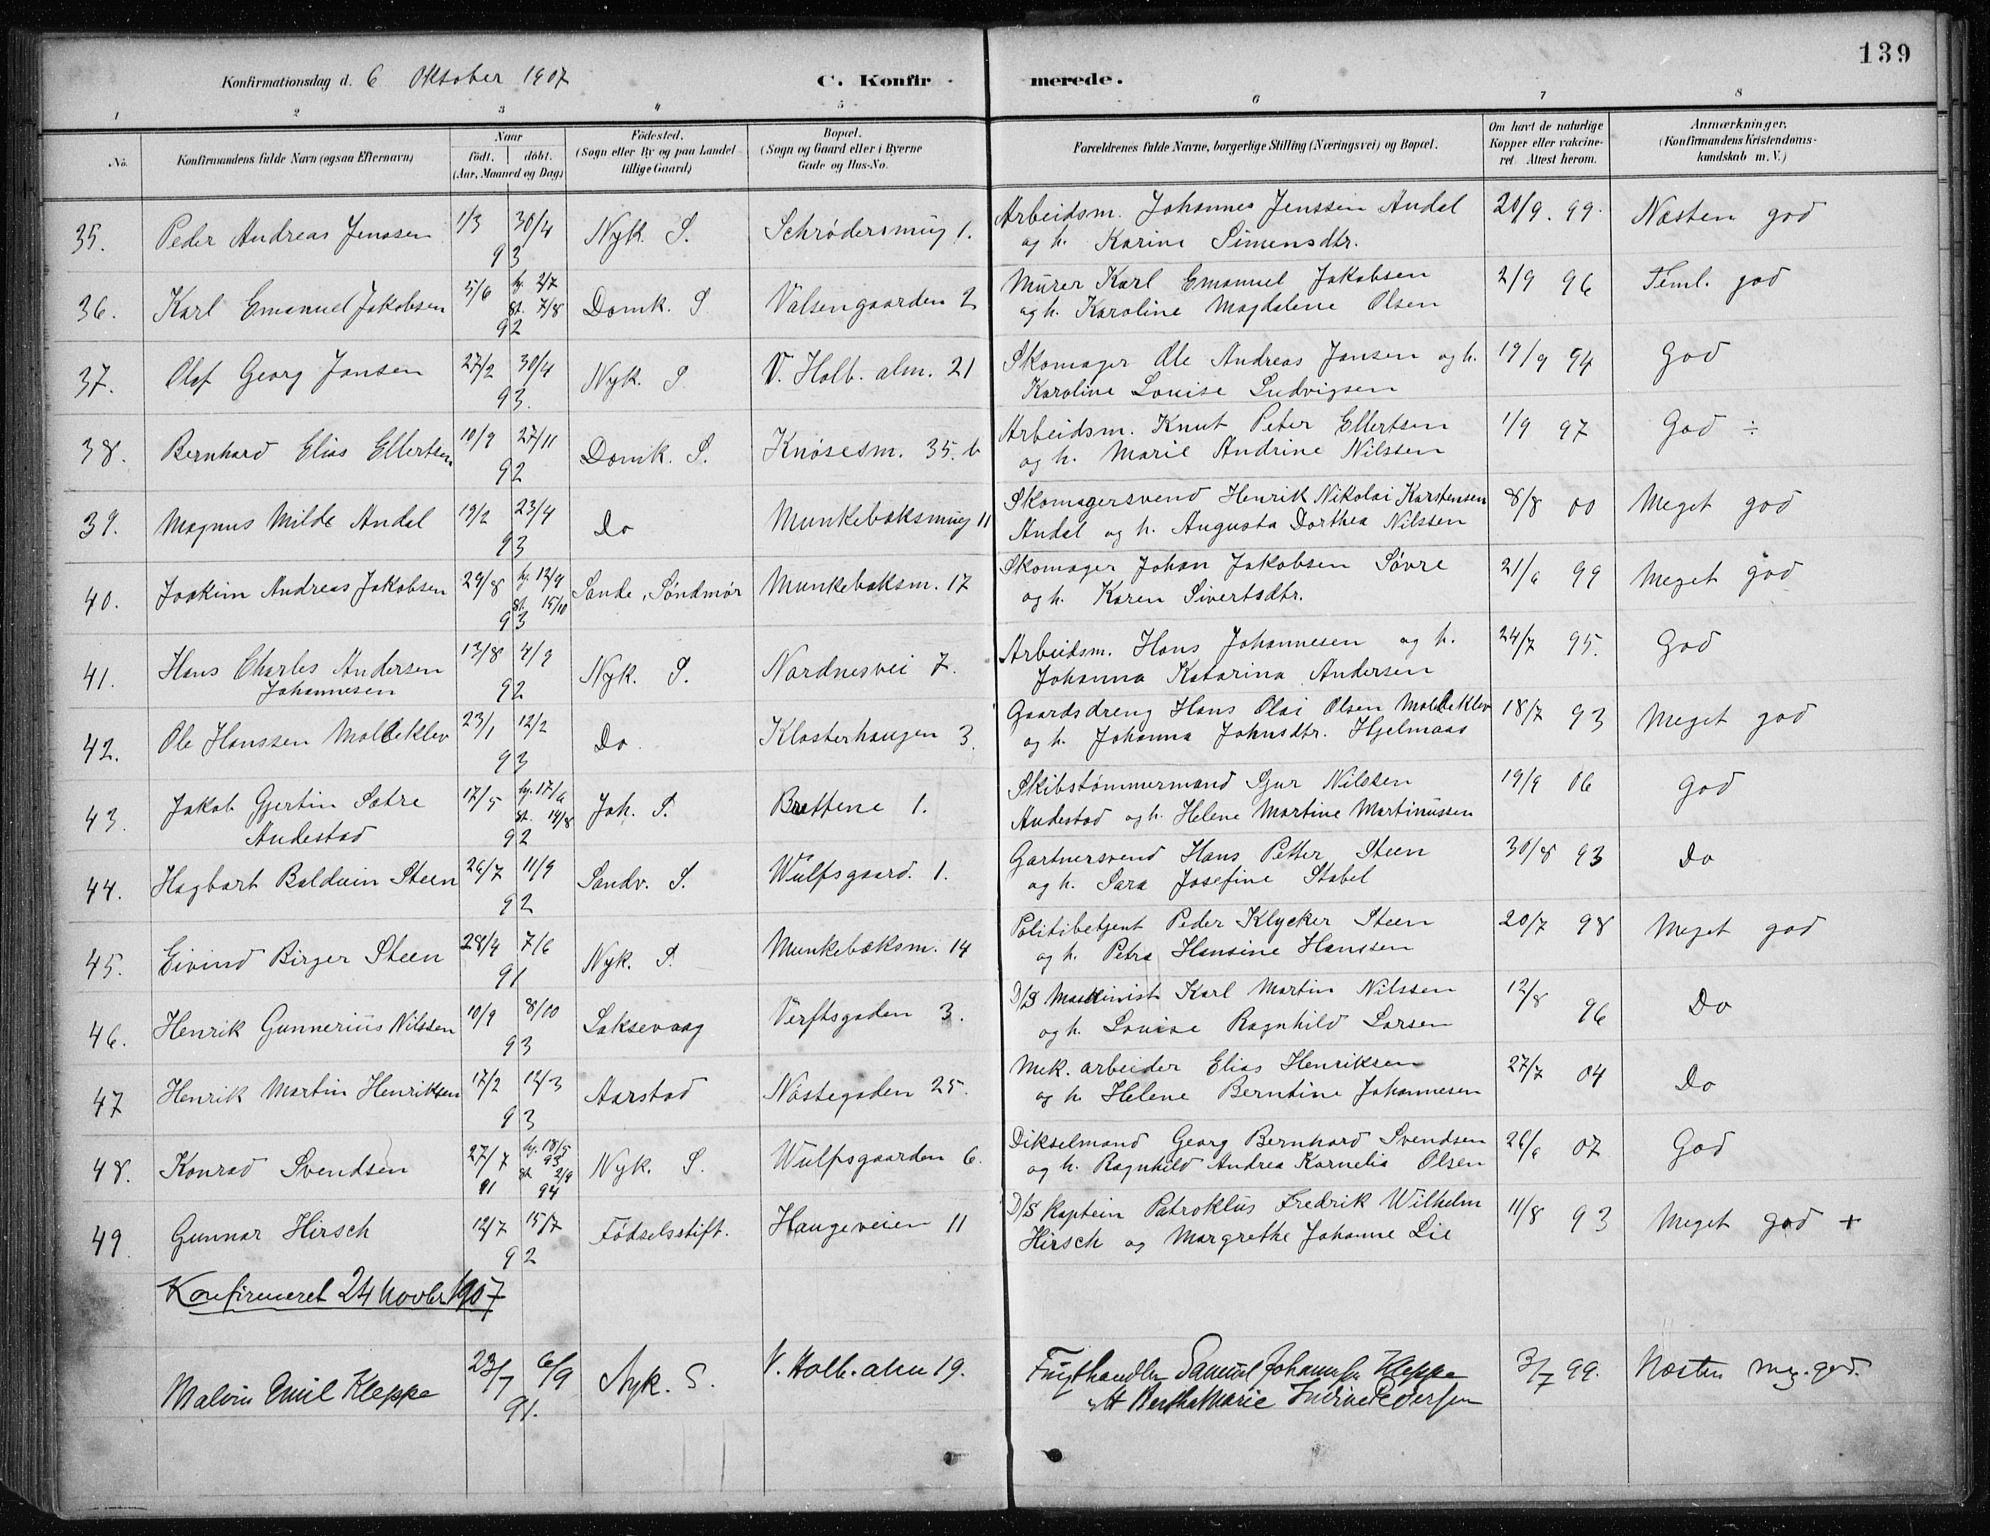 139
Konfirmationsdag d. 6 Oktober 1907 C. Konfirmerede.
1 2 3 4 5 6 7 8
No. Konfirmandens fulde Navn (ogsaa Efternavn) Naar födt. döbt. (Aar, Maaned og Dag) Födested. (Sogn eller By og paa Landet tillige Gaard) Bopæl. (Sogn og Gaard eller i Byerne Gade og Hus-No. Forældrenes fulde Navne, borgerlige Stilling (Næringsvei) og Bopæl. Om havt de naturlige Kopper eller vakcineret Attest herom. Anmærkninger, (Konfirmandens Kristendomskundskab m. V.)
35. Peder Andreas Jenssen 1/3 30/4 93 Nyk. S. Schrødersmug 1. Arbeidsm. Johannes Jenssen Andal 20/9. 99. Næsten god
og h. Karine Simensdtr.
36. Karl Emanuel Jakobsen 5/6 hj. 2/7 st. 7/8 92 Domk. S Valsengaarden 2 Murer Karl Emanuel Jakobsen 2/9 96 Teml. god
og h. Karoline Magdalene Olsen
37. Olaf Georg Jansen 27/2 30/4 93. Nyk. S. V. Holb. alm. 21 Skomager Ole Andreas Jansen og h. 19/9 94 God
Karoline Louise Ludvigsen
38. Bernhard Elias Ellertsen 10/9 27/11 92 Domk. S. Knøsesm. 35. b Arbeidsm. Knut Peter Ellertsen 1/9 97 God ÷
og h. Marie Andrine Nilssen
39. Magnus Milde Andal 19/2 23/4 93 Do Munkebæksmug 11 Skomagersvend Henrik Nikolai Karstensen 8/8 00 Meget god
Andal og h. Augusta Dorthea Nilssen
40. Joakim Andreas Jakobsen 29/8 hj. 12/9 st. 15/10 93 Sande, Søndmør Munkebæksm. 17 Skomager Johan Jakobsen Søvre 21/6 99 Meget god
og h. Karen Sivertsdtr.
41. Hans Charles Andersen 13/8 4/9 92 Nyk. S. Nordnesvei 7. Arbeidsm. Hans Johannesen og h. 24/7 95. God
Johannesen Johanna Katarina Andersen
42. Ole Hanssen Molleklev 23/1 12/2 93 Do Klosterhaugen 3. Gaardsdreng Hans Olai Olsen Molleklev 18/7 93 Meget god
og h. Johanna Johnsdtr. Hjelmaas
43. Jakob Gjertin Sætre 17/5 hj. 17/6 st. 14/8 92 Joh. S. Brattene 1. Skibstømmermand Sjur Nilssen 19/9 06 God
Andestad Andestad og h. Helene Martine Martinussen
44. Hagbart Balduin Steen 26/7 11/9 92 Sandv. S. Wulfsgaard. 1. Gartnersvend Hans Petter Steen 30/8 93 Do
og h. Sara Josefine Stabel
45. Eivind Birger Steen 28/4 7/6 91 Nyk. S. Munkebæksm. 14 Politibetjent Peder Klycker Steen 20/7 98 Meget god
og h. Petra Hansine Hanssen
46. Henrik Gunnerius Nilssen 10/9 8/10 93 Laksevaag Verftsgaden 3. D/S Maskinist Karl Martin Nilssen 12/8 96 Do
og h. Louise Ragnhild Larsen
47 Henrik Martin Henriksen 17/2 12/3 93 Aarstad Nøstegaden 25. Mek. arbeider Elias Henriksen 27/7 04 Do
og h Helene Berntine Johannesen
48. Konrad Svendsen 27/7 91 hj. 18/5 93 st. 2/9 94 Nyk. S. Wulfsgaarden 6. Dikselmand Georg Bernhard Svendsen 26/6 07 God
og h. Ragnhild Andrea Kornelia Olsen
49. Gunnar Hirsch 12/7 15/7 92 Fødselsstift. Haugeveien 11 D/S Kaptein Patroklus Fredrik Wilhelm 11/8 93 Meget god +
Hirsch og Margrethe Johanne Lie
Konfirmeret 24 Novbr 1907
Malvin Emil Kleppe 23/7 6/9 91. Nyk. S. V. Holb. alm 19. Frugthandler Samuel Johannesen Kleppe 3/7 99. Næsten meg. god.
og H Bertha Marie Indrine Pedersen